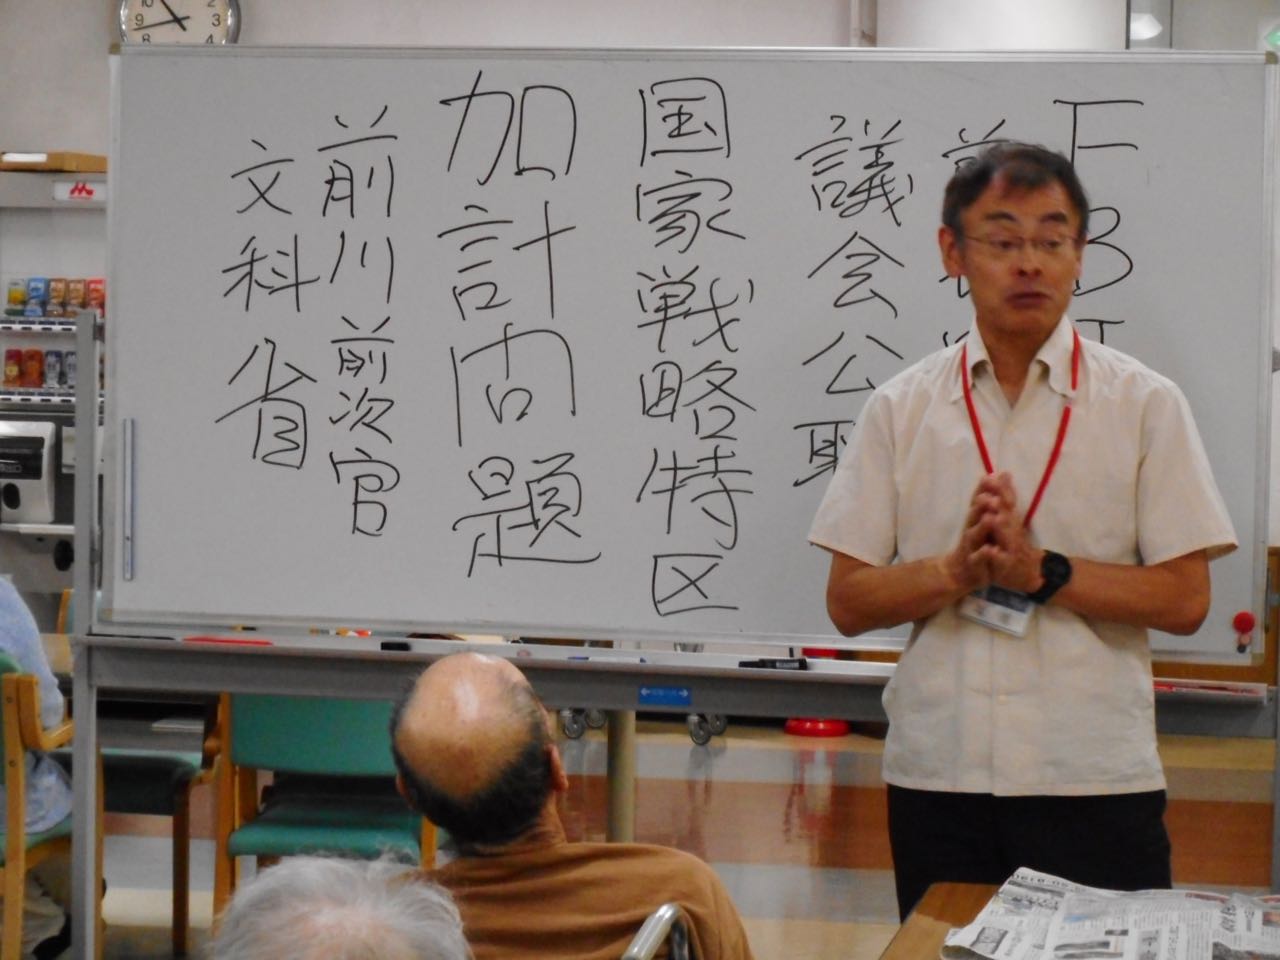 FBI
前
議会公聴
国家戦略特区
加計問題
前川前次官
文科省